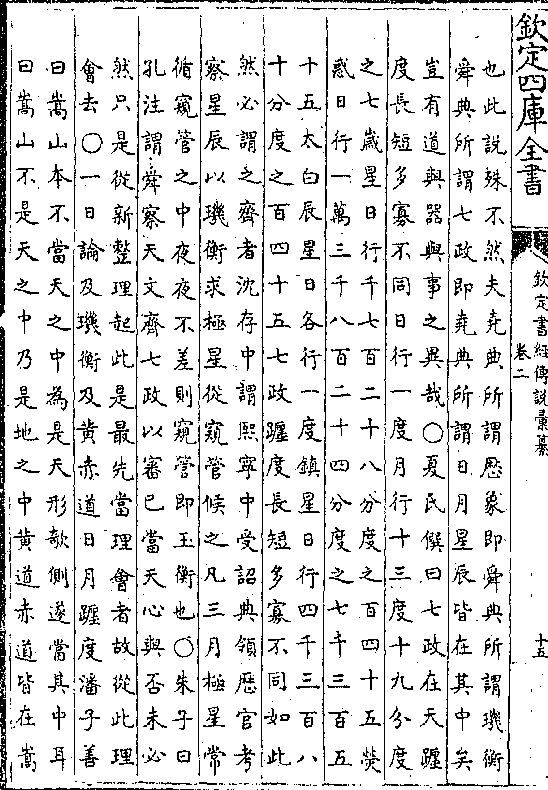 欽定四庫全書
欽定書經傳說彙纂
卷二
十五
也此說殊不然夫堯典所謂厯象即舜典所謂璣衡
舜典所謂七政即堯典所謂日月星辰皆在其中矣
豈有道與器與事之異哉○夏氏僎曰七政在天躔
度長短多寡不同日行一度月行十三度十九分度
之七歲星日行千七百二十八分度之百四十五熒
惑日行一萬三千八百二十四分度之七千三百五
十五太白辰星日各行一度鎮星日行四千三百八
十分度之百四十五七政躔度長短多寡不同如此
然必謂之齊者沈存中謂熙寧中受詔典領厯官考
察星辰以璣衡求極星從窺管候之凡三月極星常
循窺管之中夜夜不差則窺管即玉衡也○朱子曰
孔注謂舜察天文齊七政以審已當天心與否未必
然只是從新整理起此是最先當理會者故從此理
會去○一日論及璣衡及黄赤道日月躔度潘子善
曰嵩山本不當天之中為是天形欹側遂當其中耳
曰嵩山不是天之中乃是地之中黄道赤道皆在嵩